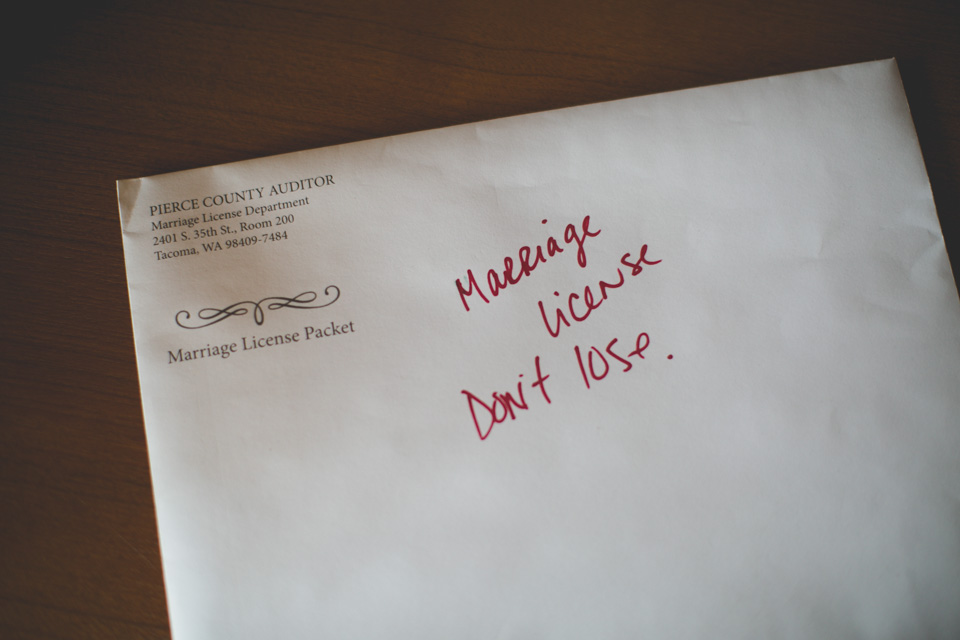 PIERCE COUNTY AUDITOR
Marriage License Department
2401 S. 35th St., Room 200
Tacoma, WA 98409-7484
Marriage License Packet
Marriage
license
Don't lose.